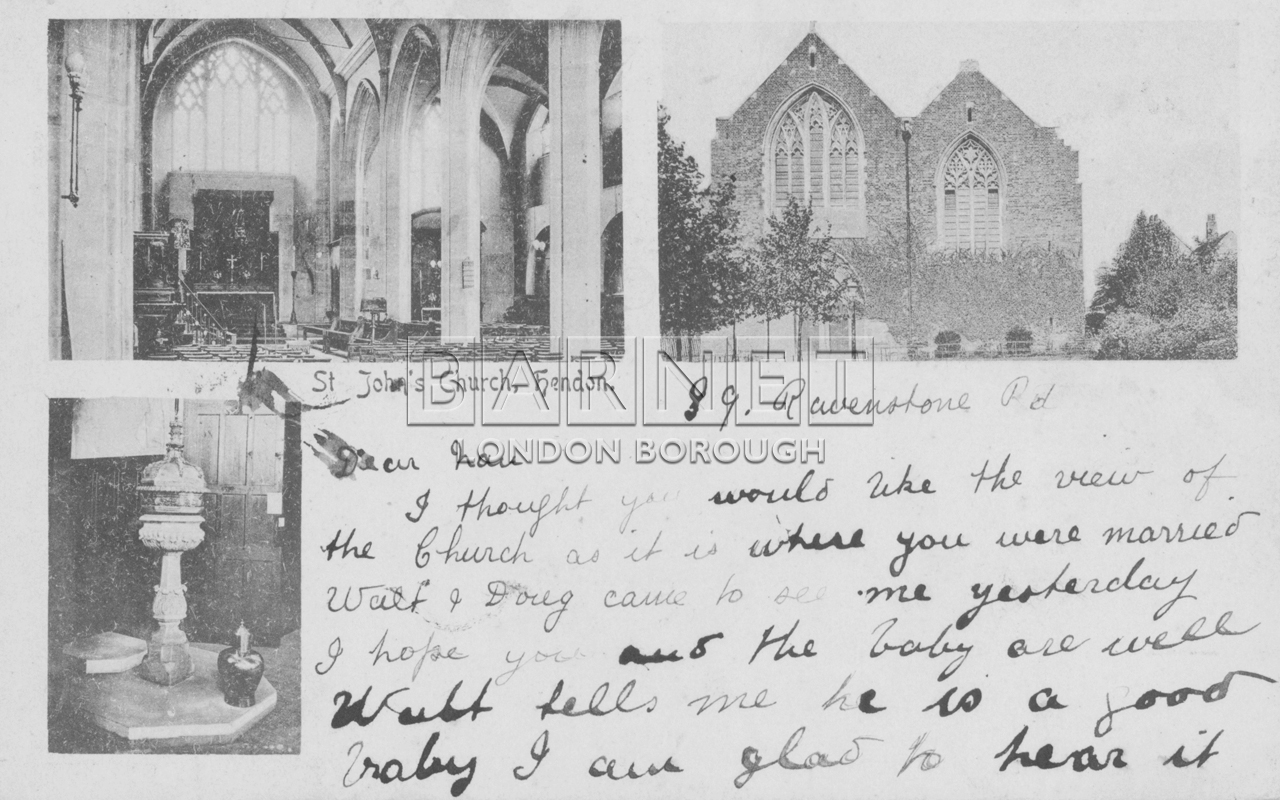 St John's Church, Hendon.
BARNET
LONDON BOROUGH
Ravenstone Rd
Dear
I thought you would like the view of
the Church as it is where you were married
Walt & Doug came to see me yesterday
I hope you and the baby are well
Walt tells me he is a good
baby I am glad to hear it